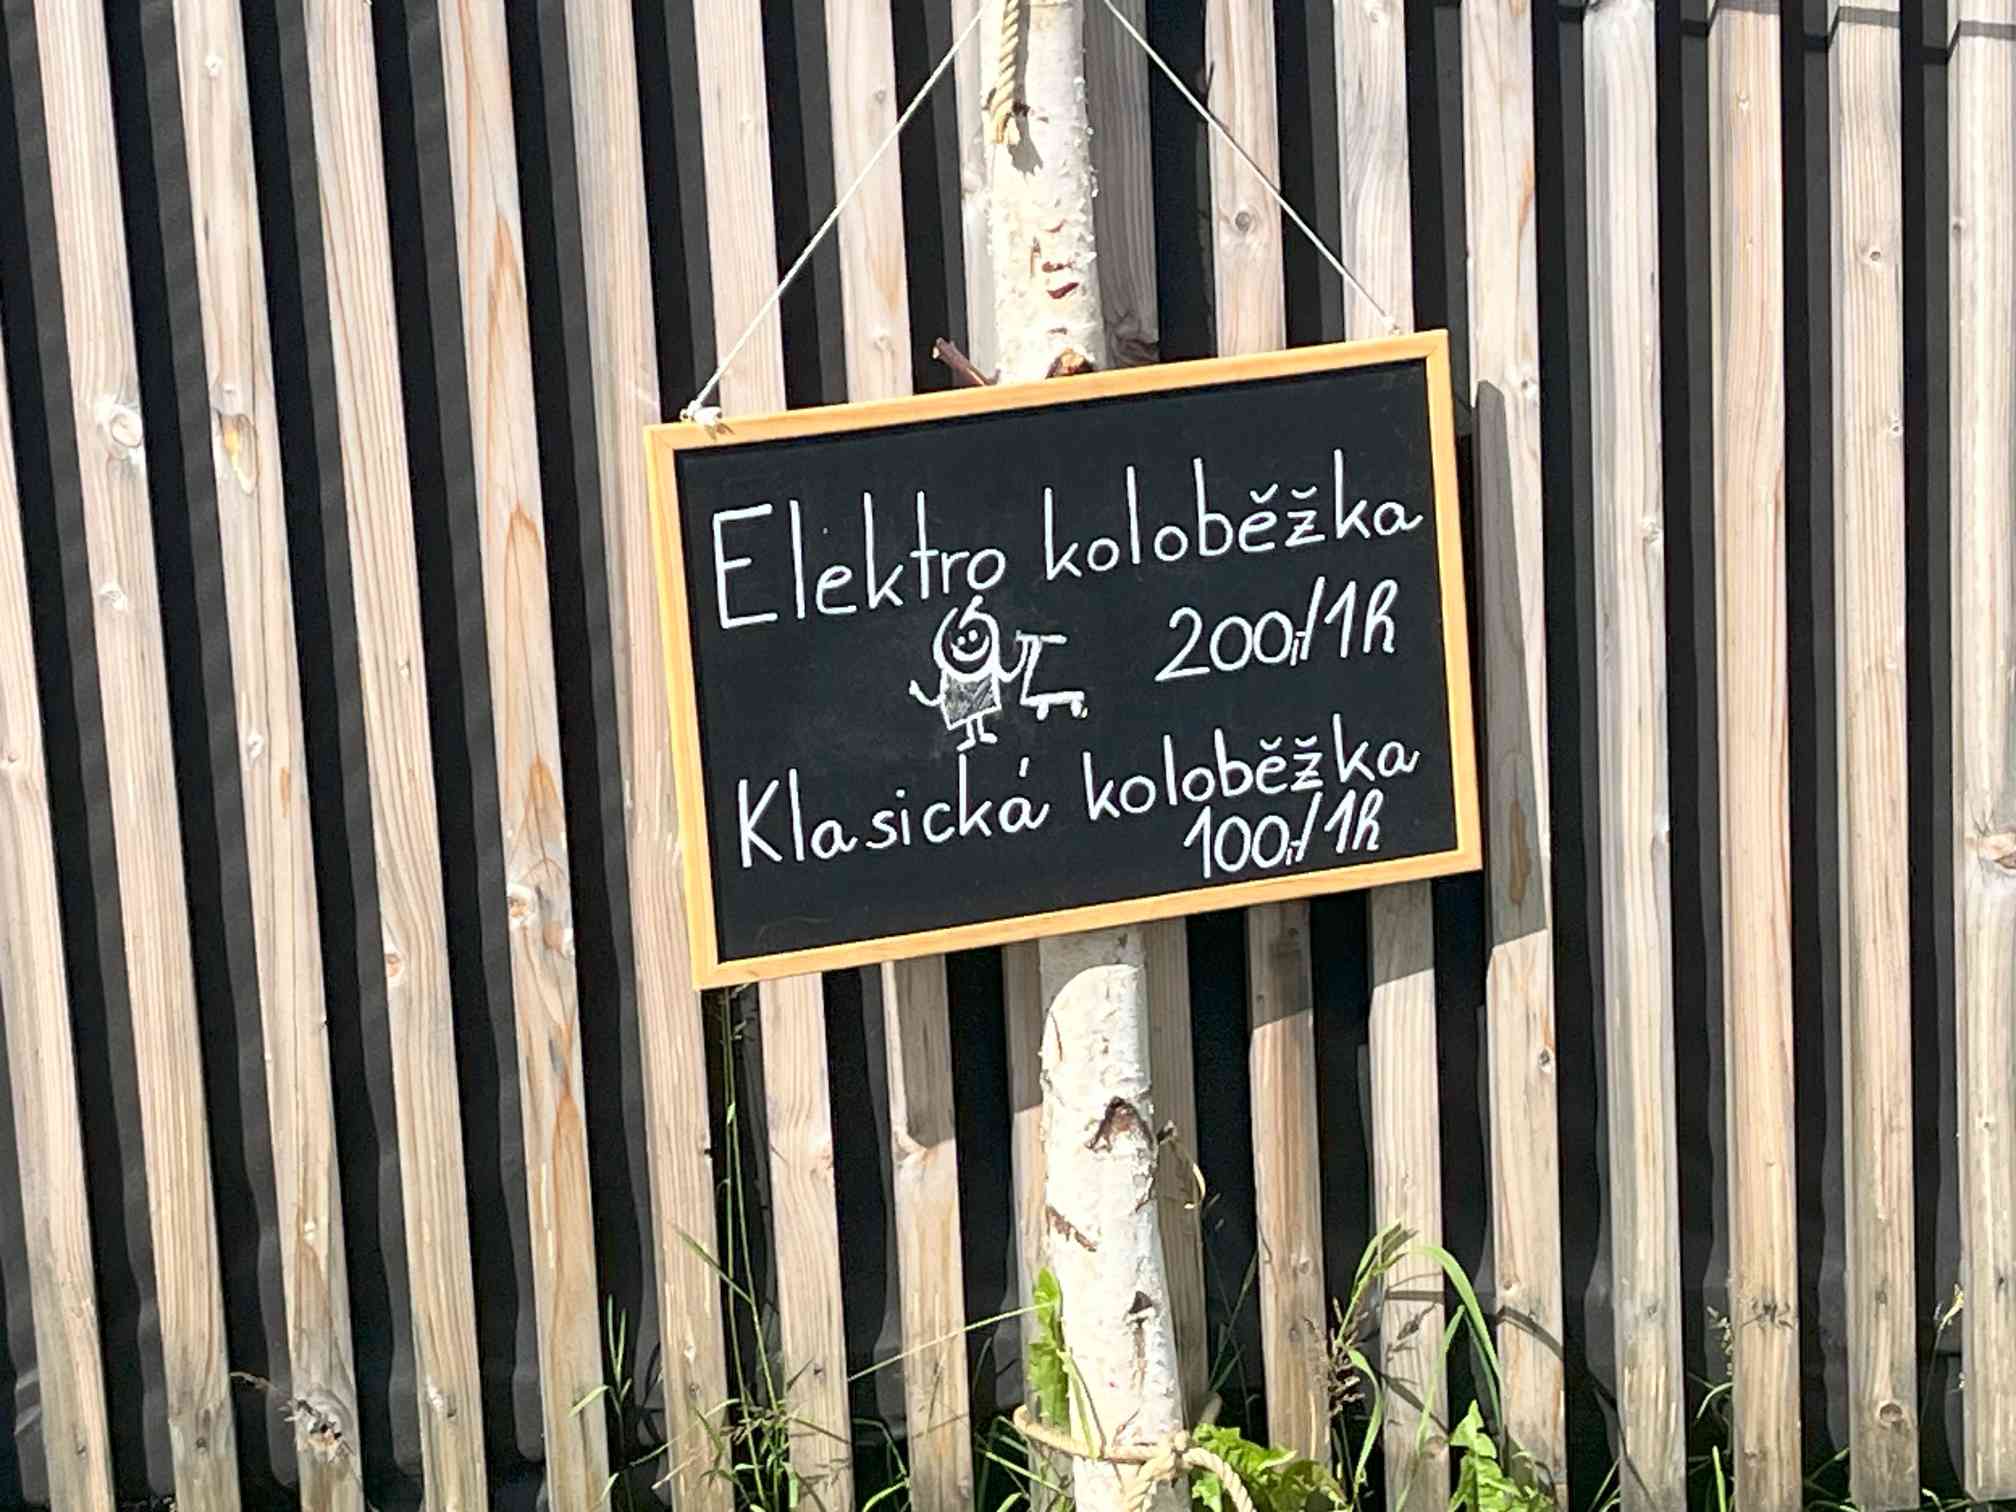 Elektro koloběžka
200,-/1h
Klasická koloběžka
100,-/1h